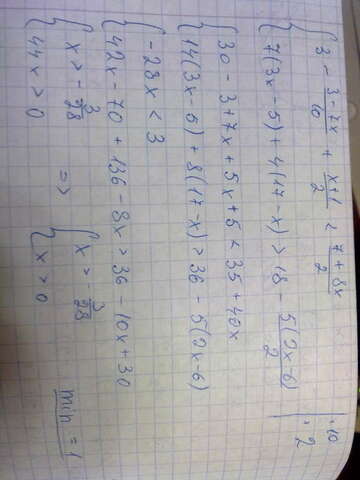 3 - (3-7x)/10 + (x+1)/2 < (7+8x)/2 | ·10
7(3x-5) + 4(17-x) > 18 - 5(2x-6)/2 | ·2
30 - 3 + 7x + 5x + 5 < 35 + 40x
14(3x-5) + 8(17-x) > 36 - 5(2x-6)
-28x < 3
42x - 70 + 136 - 8x > 36 - 10x + 30
x > -3/28 => x > -3/28
44x > 0 x > 0 min = 1